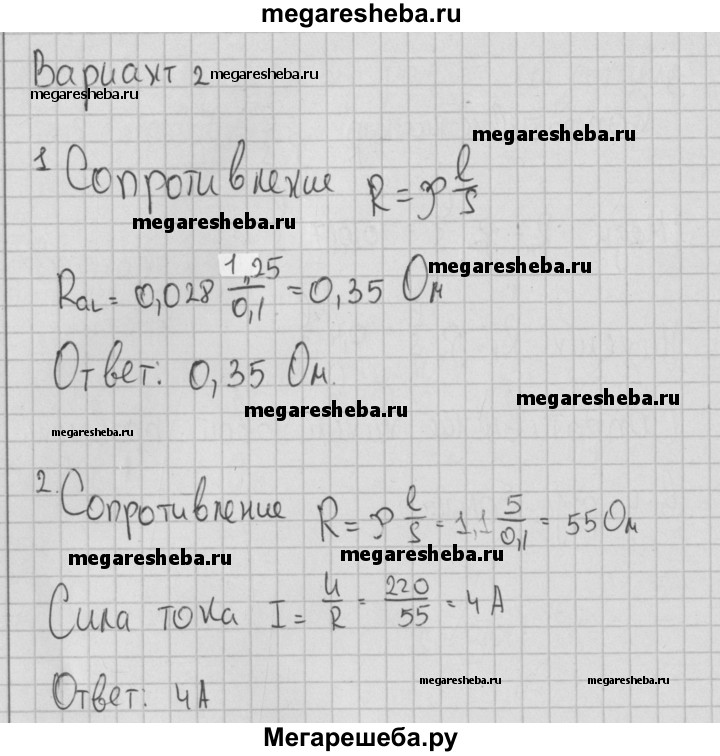 megaresheba.ru
Вариант 2 megaresheba.ru
megaresheba.ru
megaresheba.ru
1 Сопротивление R = ρ l/S
megaresheba.ru
megaresheba.ru
Rал = 0,028 1,25/0,1 = 0,35 Ом
Ответ: 0,35 Ом.
megaresheba.ru
megaresheba.ru
megaresheba.ru
2. Сопротивление R = ρ l/S = 1,1 5/0,1 = 55 Ом
megaresheba.ru
megaresheba.ru
Сила тока I = U/R = 220/55 = 4 А
Ответ: 4 А
megaresheba.ru
megaresheba.ru
Мегарешеба.ру